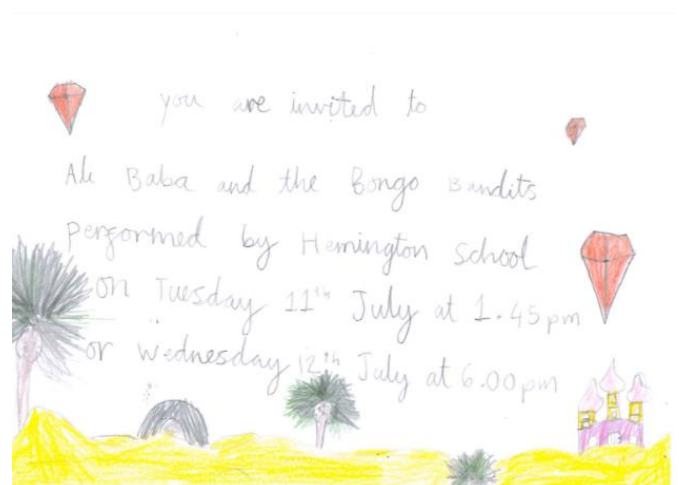 you are invited to
Ali Baba and the Bongo Bandits
performed by Hemington School
on Tuesday 11th July at 1.45pm
or Wednesday 12th July at 6.00pm